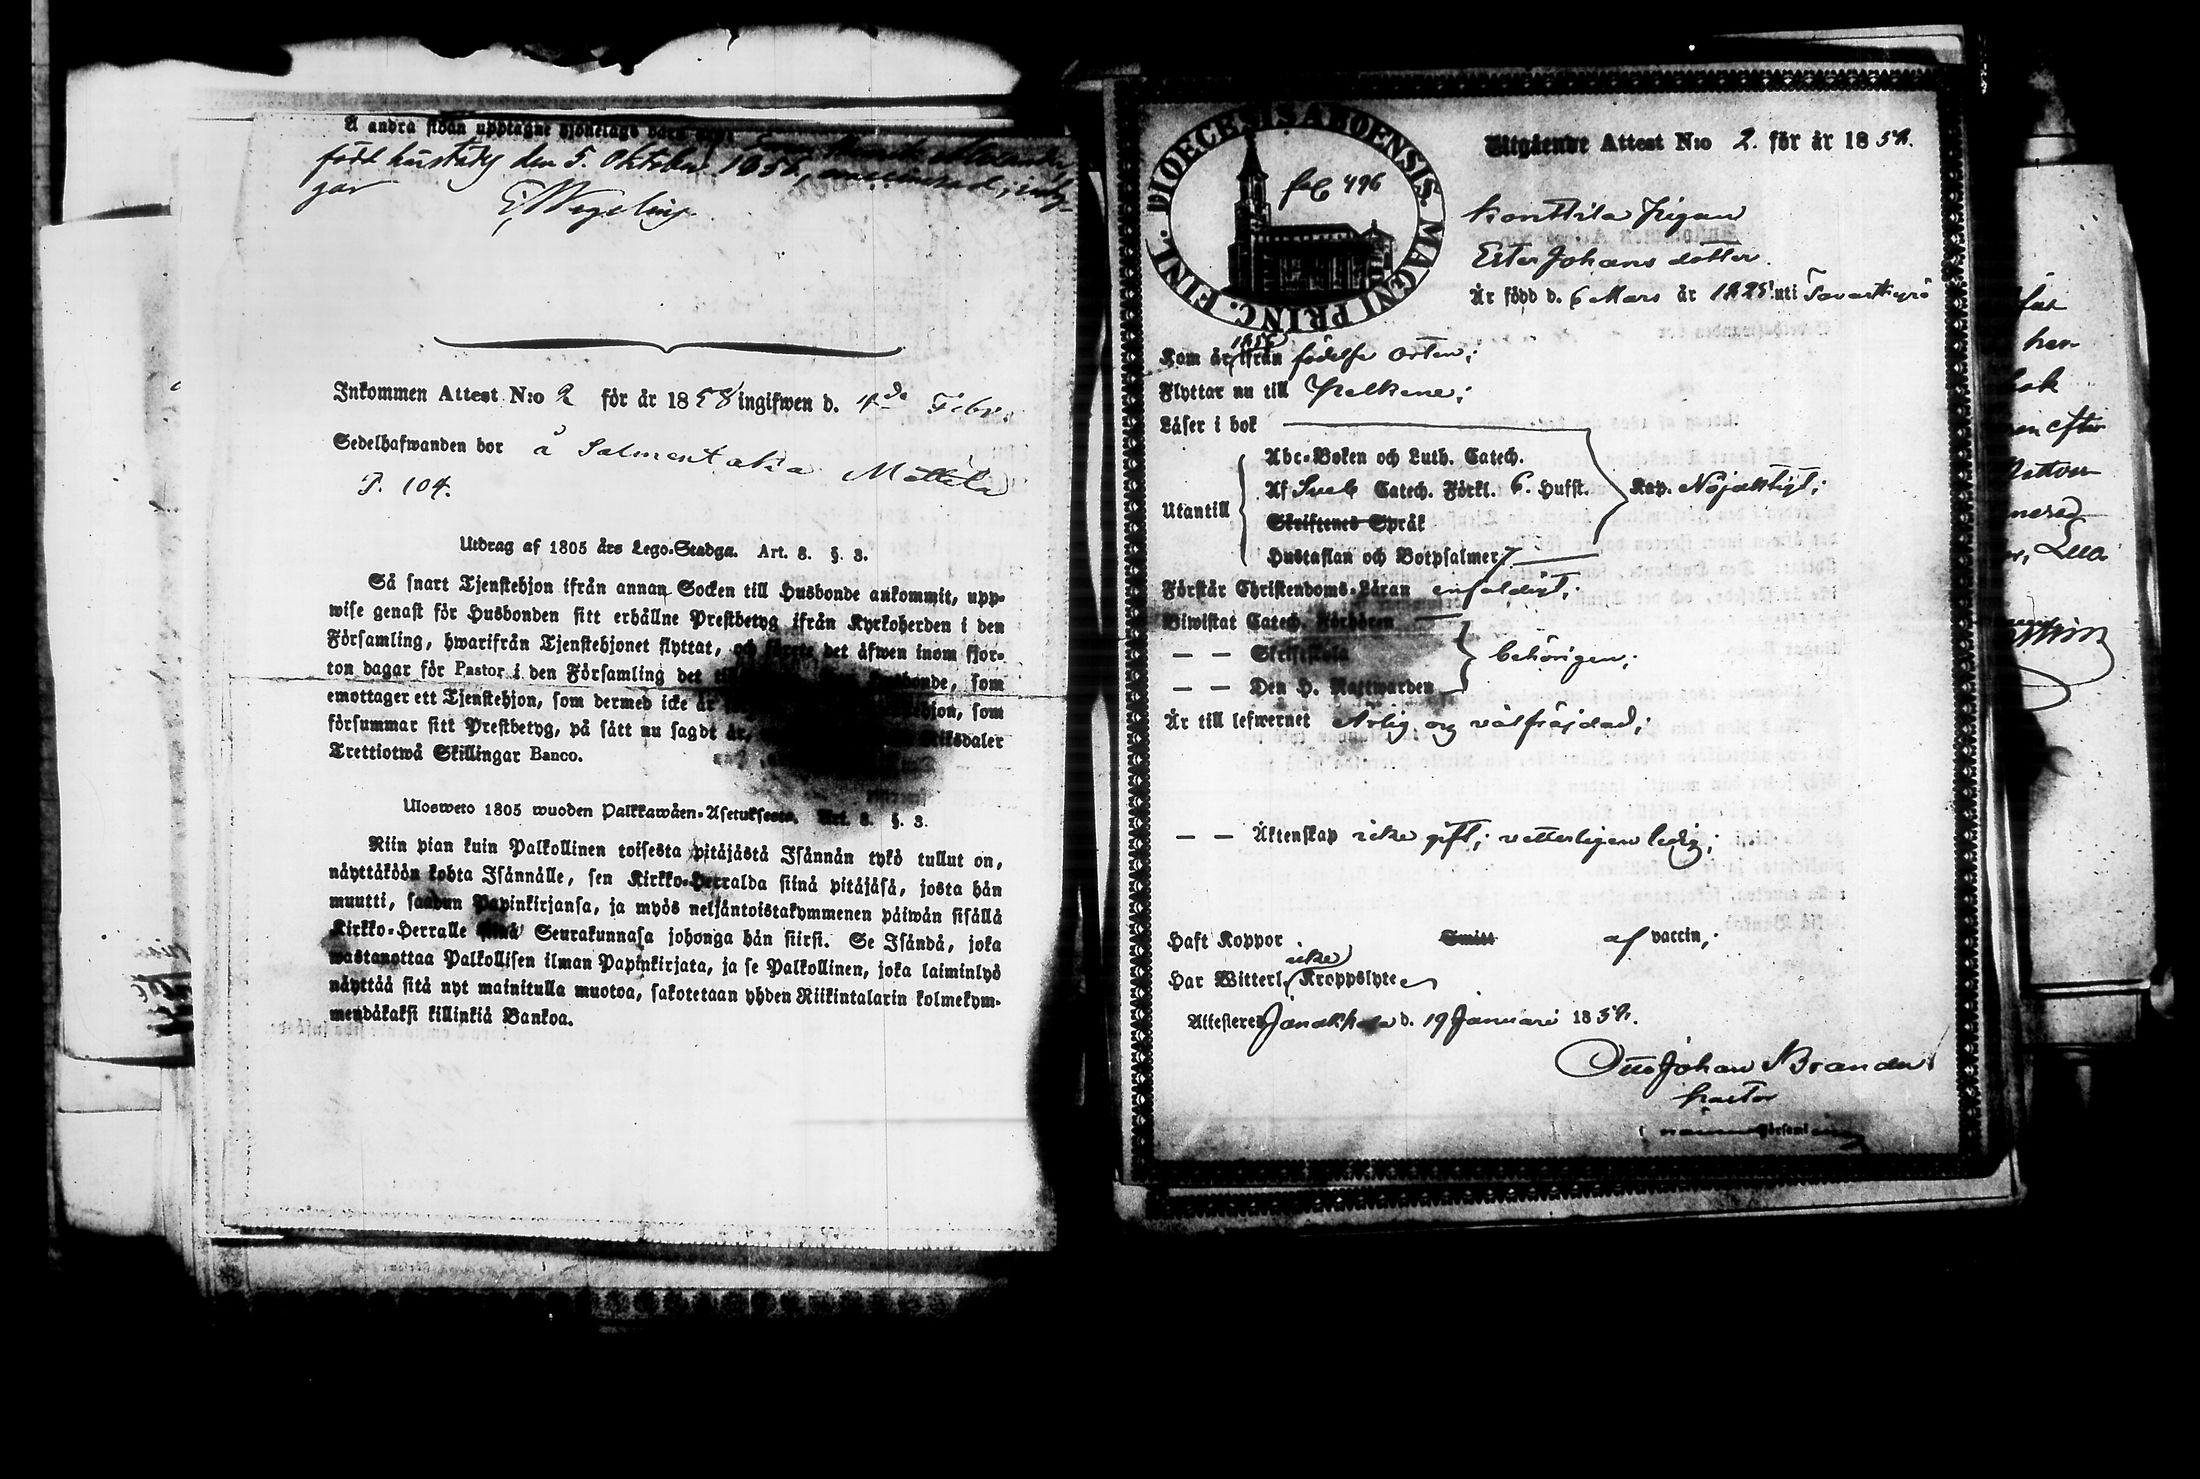 Å andra sidan upptagne hjonelags barn
född härstädes den 5. Oktober 1856, vaccinerad;
E. Wegelius
Inkommen Attest N:o 2 för år 1858 ingifwen d. 4de Febr.
Sedelhafwanden bor å Salmentaka Mattila
P. 104.
Utdrag af 1805 års Lego-Stadga. Art. 8. §. 3.
Så snart Tjenstehjon ifrån annan Socken till Husbonde ankommit, upp-
wise genast för Husbonden sitt erhållne Prestbetyg ifrån Kyrkoherden i den
Församling, hwarifrån Tjenstehjonet flyttat, och förete det äfwen inom fjor-
ton dagar för Pastor i den Församling det som
emottager ett Tjenstehjon, som dermed icke är som
försummar sitt Prestbetyg, på sätt nu sagdt är, Riksdaler
Trettiotwå Skillingar Banco.
Ulosweto 1805 wuoden Palkkawäen-Asetuksesta. Art. 8. §. 3.
Niin pian kuin Palkollinen toisesta pitäjästä Isännän tykö tullut on,
näyttäköön kohta Isännälle, sen Kirkko-Herralda siinä pitäjäsä, josta hän
muutti, saadun Papinkirjansa, ja myös neljäntoistakymmenen päiwän sisällä
Kirkko-Herralle siinä Seurakunnasa johonga hän siirsi. Se Isändä, joka
wastanottaa Palkollisen ilman Papinkirjata, ja se Palkollinen, joka laiminlyö
näyttää sitä nyt mainitulla muotoa, sakotetaan yhden Riikintalarin kolmekym-
mendäkaksi killinkiä Bankoa.
DIOECESIS ABOENSIS. MAGNI PRINC. FINL.
fol 496
Utgående Attest N:o 2. för år 1858.
Ester Johans dotter
Är född d. 6 Mars år 1825 uti Tavastkyrö
Kom år 1856 ifrån födelse orten;
Flyttar nu till Pelkene;
Läser i bok
Utantill
Abc-Boken och Luth. Catech.
Af Sveb Catech. Förkl. 6. Hufst.
Skriftenes Språk
Hustaflan och Botpsalmer 7
Kap. Nöjaktigt;
Förstår Christendoms-Läran enfaldigt;
Biwistat Catech. Förhören
— — Skriftskola
— — Den H. Nattwarden
behörigen;
Är till lefwernet Ärlig og välfräjdad;
— — Äktenskap icke gift; vetterligen ledig;
Haft Koppor Smitt af vaccin;
Har Witterl. icke Kroppslyte
Attesteres Janakkala d. 19 Januari 1858.
Otto Johan Brander
Pastor
i Församl